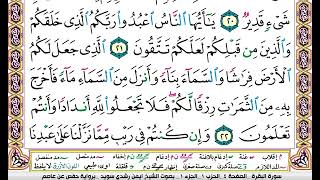 شَىْءٍ قَدِيرٌ ٢٠ يَٰٓأَيُّهَا ٱلنَّاسُ ٱعْبُدُوا۟ رَبَّكُمُ ٱلَّذِى خَلَقَكُمْ
وَٱلَّذِينَ مِن قَبْلِكُمْ لَعَلَّكُمْ تَتَّقُونَ ٢١ ٱلَّذِى جَعَلَ لَكُمُ
ٱلْأَرْضَ فِرَٰشًا وَٱلسَّمَآءَ بِنَآءً وَأَنزَلَ مِنَ ٱلسَّمَآءِ مَآءً فَأَخْرَجَ
بِهِۦ مِنَ ٱلثَّمَرَٰتِ رِزْقًا لَّكُمْ ۖ فَلَا تَجْعَلُوا۟ لِلَّهِ أَندَادًا وَأَنتُمْ
تَعْلَمُونَ ٢٢ وَإِن كُنتُمْ فِى رَيْبٍ مِّمَّا نَزَّلْنَا عَلَىٰ عَبْدِنَا
سورة البقرة . الصفحة ٤ . الجزء ١ . بصوت الشيخ أيمن رشدي سويد . برواية حفص عن عاصم